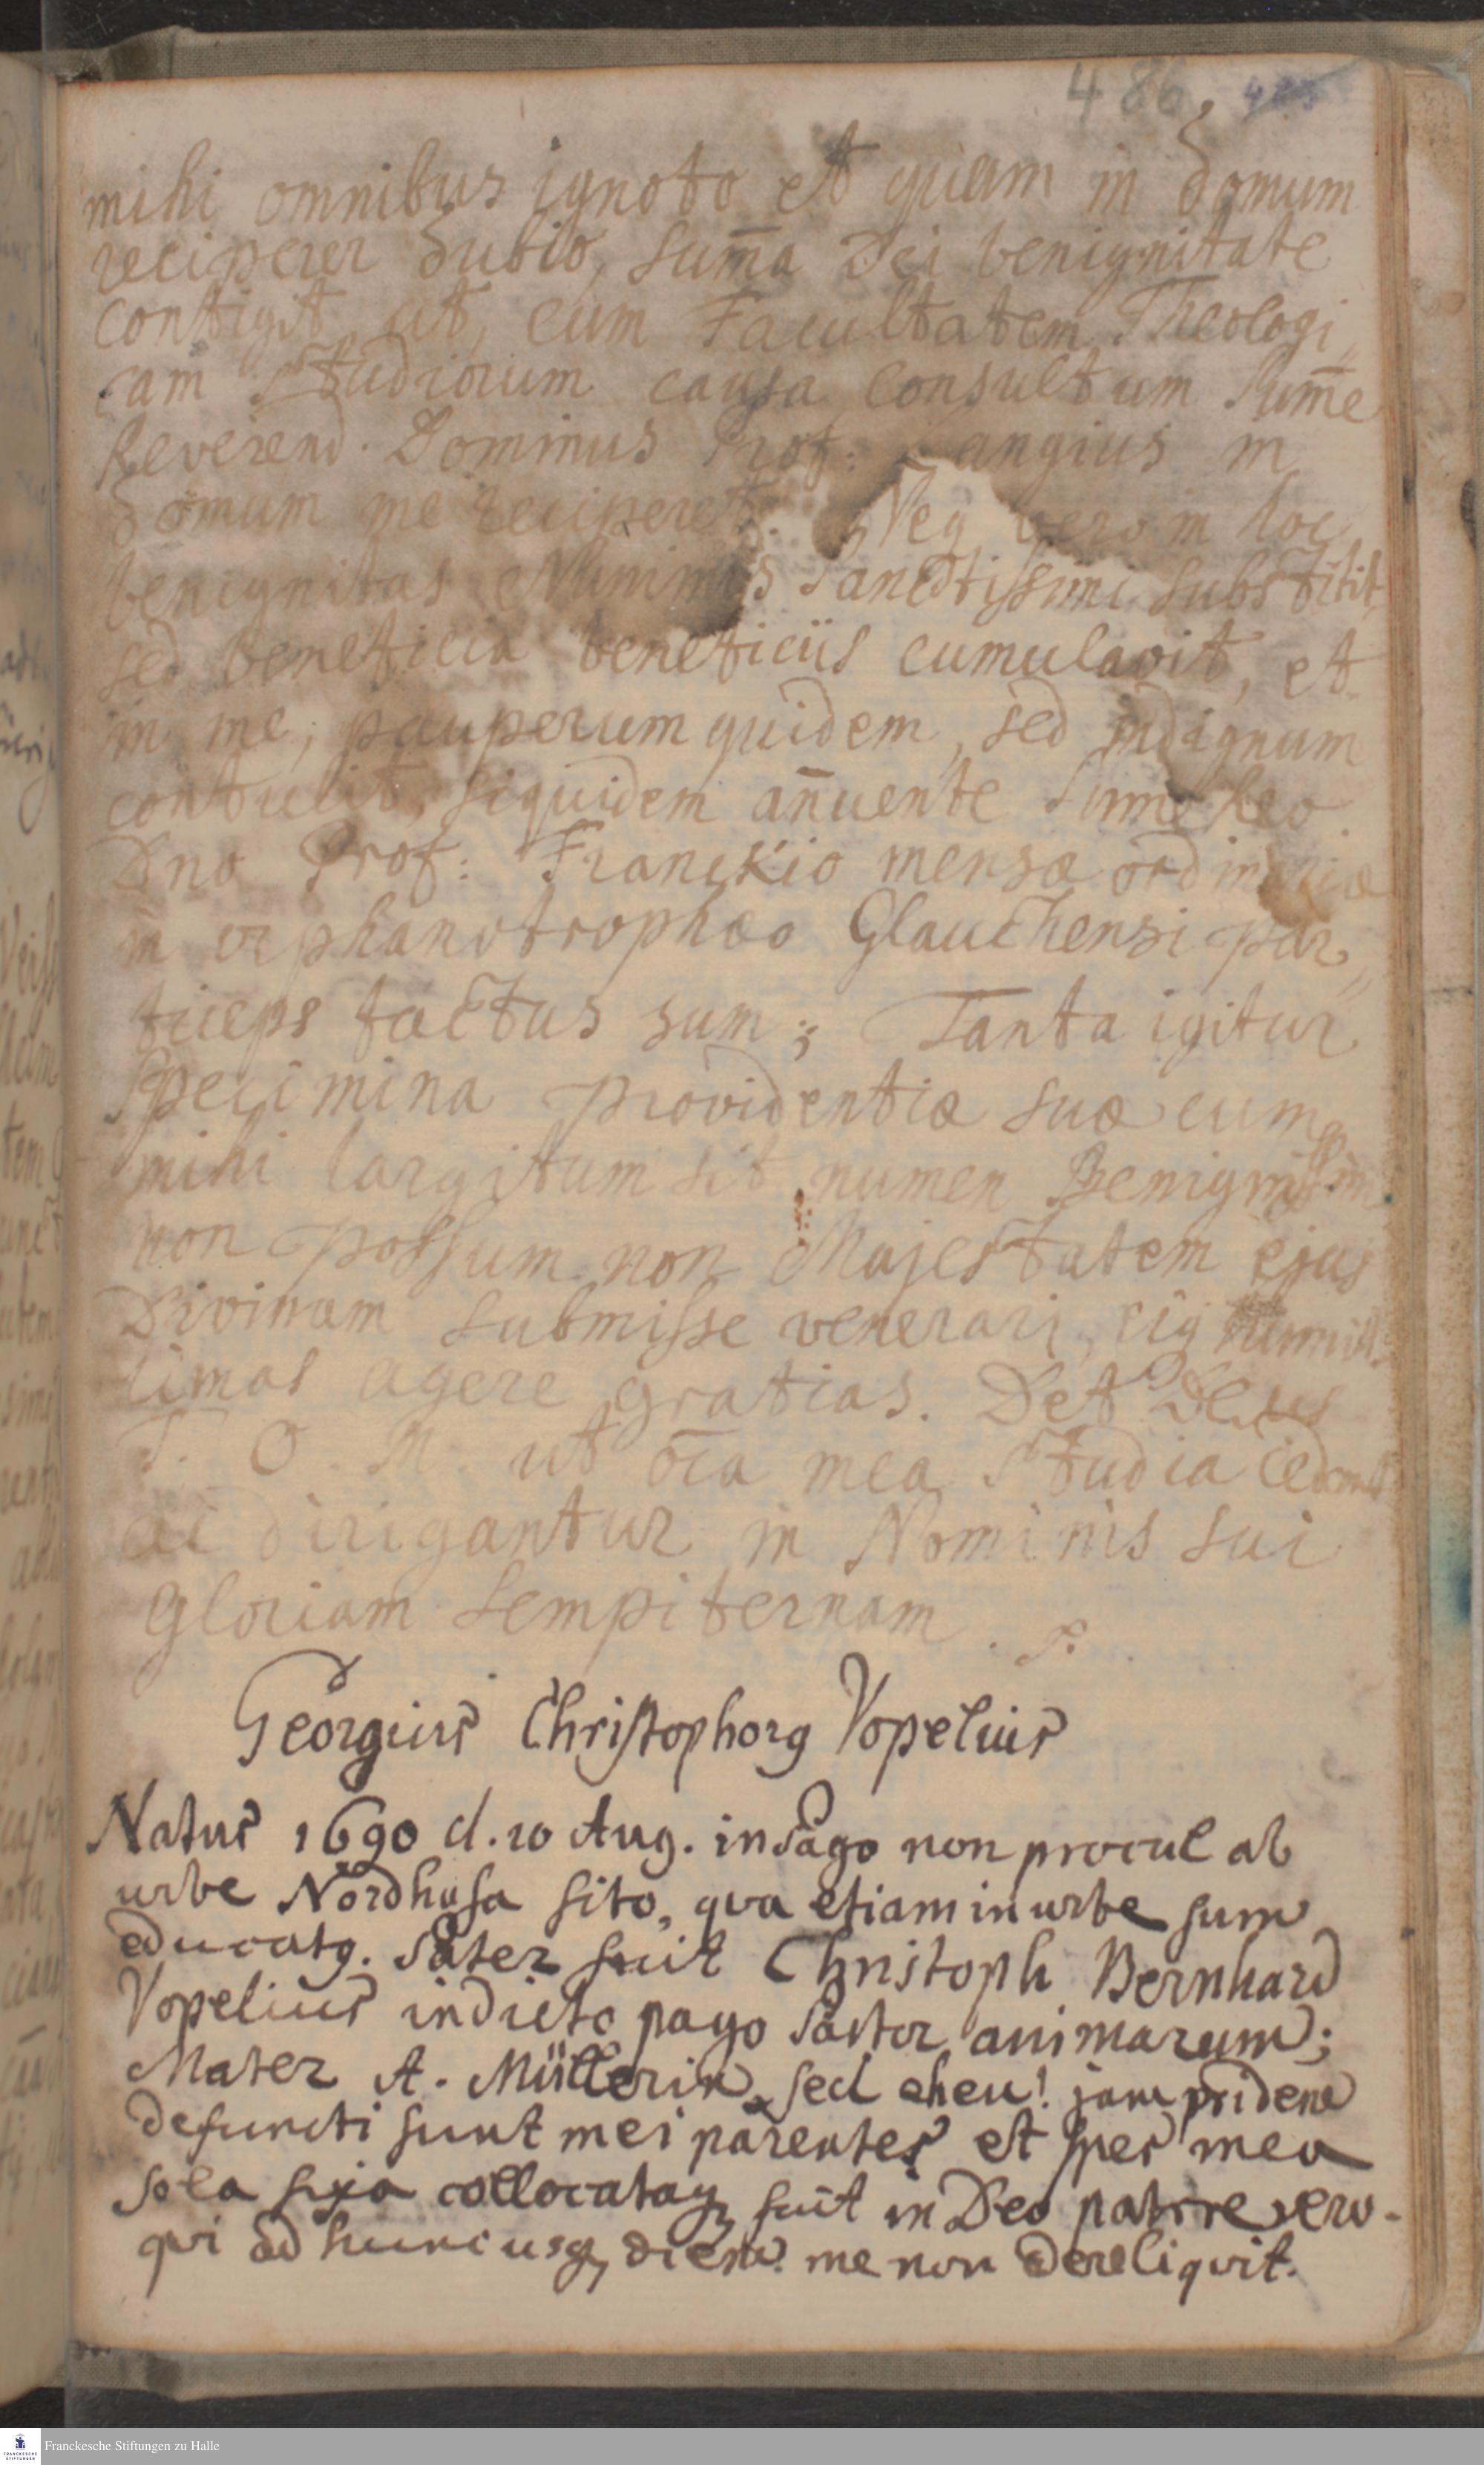 486
mihi omnibus ignoto et quam in domum
reciperer dubio, sum̄a Dei benignitate
contigit ut, cum Facultatem Theologi„
cam Studiorum causa consultum Sum̄e
Reverend. Dominus Prof: angius in
domum me reciperet. Neq vero in hoc
benignitas Numinis Sanctissimi substitit,
sed beneficia beneficiis cumulavit, et
in me, pauperum quidem, sed indignum
contulit, siquidem an̄uente Sum̄e Reo
Dno Prof: Franckio mensæ ordinariæ
in orphanotrophæo Glauchensi par„
ticeps factus sum; Tanta igitur
Specimina providentiæ suæ cum
mihi largitum sit numen Benigniss
non possum non Majestatem ejus
Divinam submisse venerari, eiq
timas agere gratias. Det Deus
T. O. M. ut oīa mea Studia
ac dirigantur in Nominis sui
Gloriam sempiternam.
Georgius Christophorg Vopelius
Natus 1690 d. 10 Aug. in Pago non procul ab
urbe Nordhusa sito, qva etiam in urbe sum
educatg. Pater fuit Christoph Bernhard
Vopelius in dicto pago Pastor animarum;
Mater A. Müllerin, sed eheu! jam pridem
defuncti sunt mei parentes et spes mea
sola fixa collocataq sūt in Deo patre vero.
qvi ad hunc usq diem me non dereliqvit.
Franckesche Stiftungen zu Halle